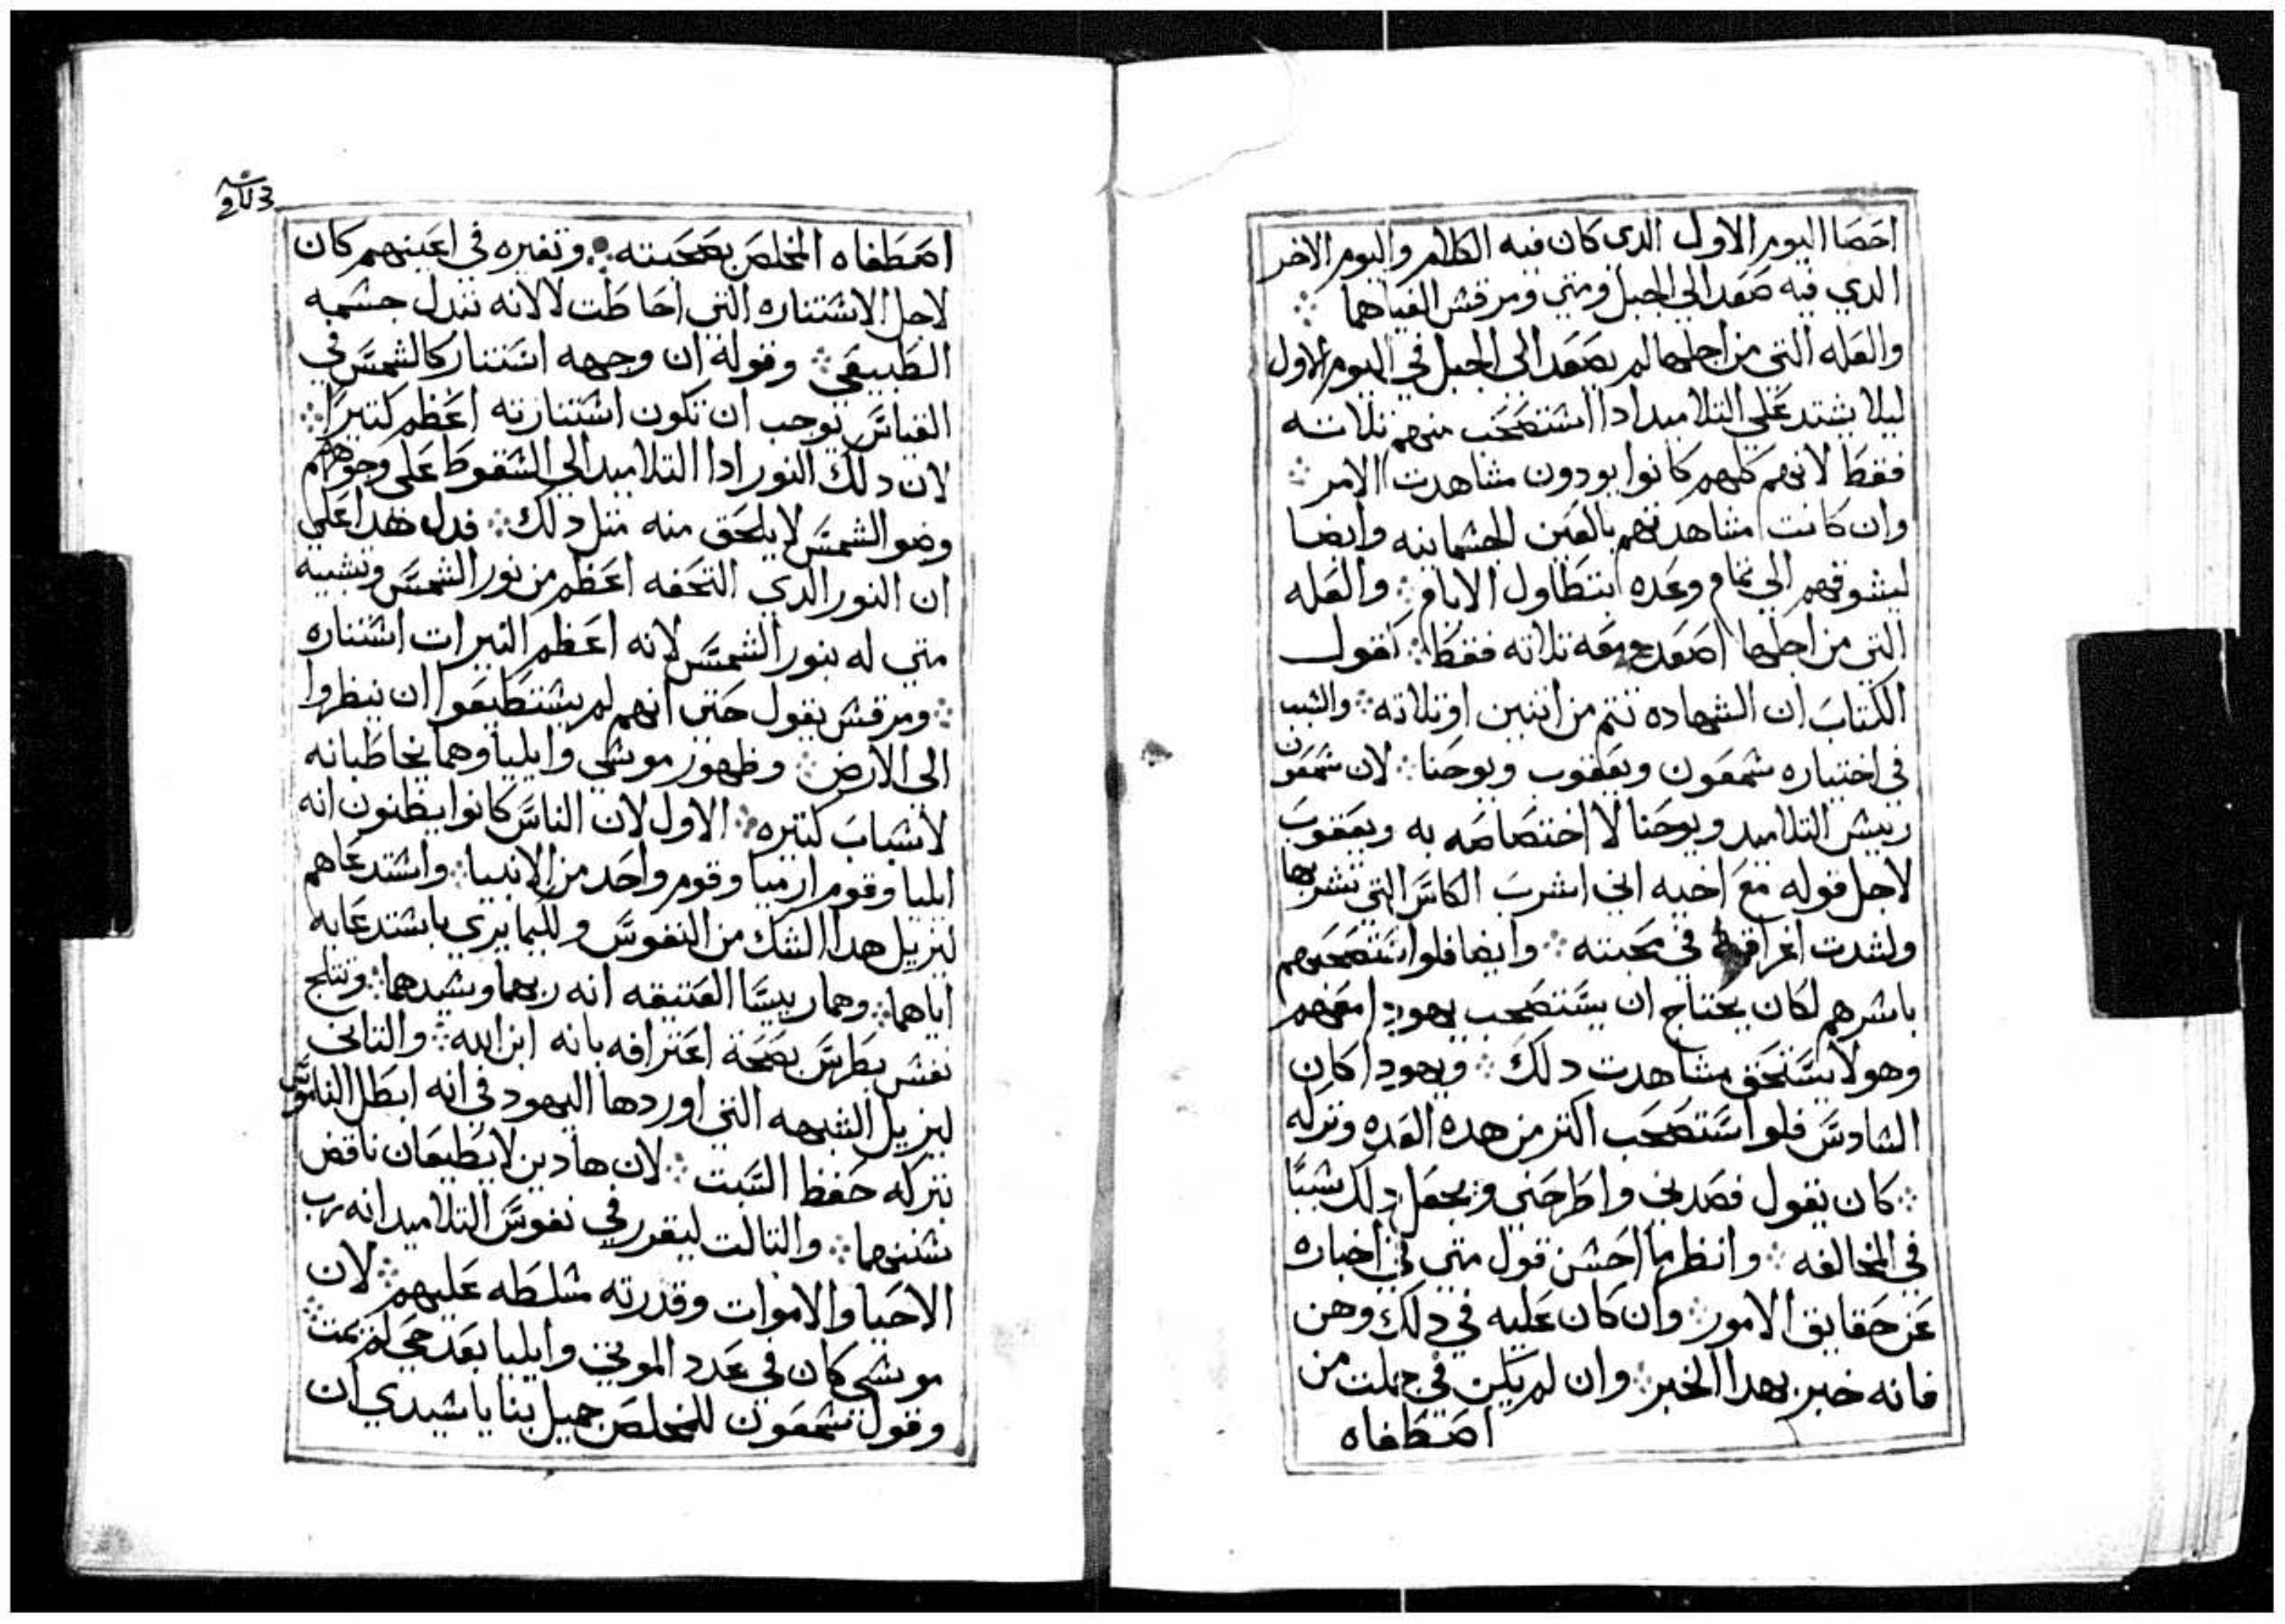 احصا اليوم الاول الدى كان فيه الكلام واليوم الاخر
الدي فيه صعد الي الجبل ومتي ومرقس الغياهما ⁘
والعله التي من اجلها لم يصعد الي الجبل في اليوم الاول
ليلا يشتد علي التلاميد ادا استصحب منهم تلاته
فقط لانهم كلهم كانوا يودون مشاهدت الامر ⁘
وان كانت مشاهدتهم بالعين الجسمانيه وايضا
ليشوقهم الي تمام وعده بتطاول الايام ⁘ والعله
التي من اجلها اصعد معه تلاته فقط ⁘ لقول
الكتاب ان الشهاده تتم من اتنين او تلاته ⁘ والسبب
في اختياره شمعون ويعقوب ويوحنا ⁘ لان شمعون
رييس التلاميد ويوحنا لا اختصاصه به ويعقوب
لاجل قوله مع اخيه اني اشرب الكاس التي تشربها
ولشدت في محبته ⁘ وايضا فلو استصحبهم
باسرهم لكان يحتاج ان يستصحب يهودا معهم
وهو لا يستحق مشاهدت دلك ⁘ ويهودا كان
السادس فلو استصحب اكتر من هده العده وتركه
⁘ كان يقول قصدني واطرحني ويجعل دلك سببا
في المخالفه ⁘ وانظر ما احسن قول متي في اخباره
عن حقايق الامور ⁘ وان كان عليه في دلك وهن
فانه خبر بهدا الخبر ⁘ وان لم يكن في جملت من
اصطفاه
اصطفاه المخلص بصحبته ⁘ وتغيره في اعينهم كان
لاجل الاستناره التي احاطت لا لانه تبدل جسمه
الطبيعي ⁘ وقوله ان وجهه استنار كالشمس في
القياس توجب ان تكون استنارته اعظم كتيرًا ⁘
لان دلك النور ادا التلاميد الي السقوط علي وجوههم
وضو الشمس لا يلحق منه متل دلك ⁘ فدل هدا علي
ان النور الدي التحفه اعظم من نور الشمس وتشبيه
متي له بنور الشمس لانه اعظم النيرات استناره
⁘ ومرقس يقول حتي انهم لم يستطيعوا ان ينظروا
الى الارض ⁘ وظهور موسي وايليا وهما يخاطبانه
لاسباب كتيره ⁘ الاول لان الناس كانوا يظنون انه
ايليا وقوم ارميا وقوم واحد من الانبيا ⁘ واستدعاهم
ليزيل هدا الشك من النفوس وكيما يري باستدعايه
اياهما ⁘ وهما رييسا العتيقه انه ربهما وسيدهما ⁘ وتتلج
نفس بطرس بصحة اعترافه بانه ابن الله ⁘ والتاني
ليزيل الشبهه التي اوردها اليهود في انه ابطل الناموس
بتركه حفظ السبت ⁘ لان هادين لا يطيعان ناقض
سنتهما ⁘ والتالت ليقرر في نفوس التلاميد انه رب
الاحيا والاموات وقدرته مسلطه عليهم ⁘ لان
موسي كان في عدد الموتي وايليا بعد حي لم يمت ⁘
وقول شمعون للمخلص جميل بنا يا سيدي ان